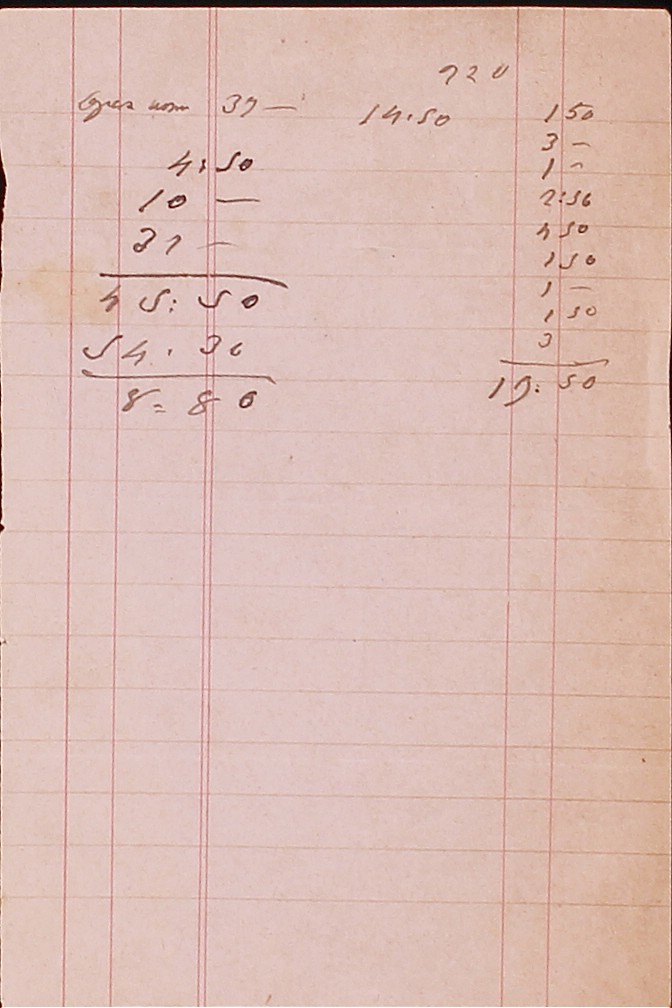 720
37 — 14.50
4: 50
10 —
31 —
45: 50
54. 30
8= 80
1 50
3 —
1 -
2:50
4 50
1 50
1 —
1 50
3
19: 50